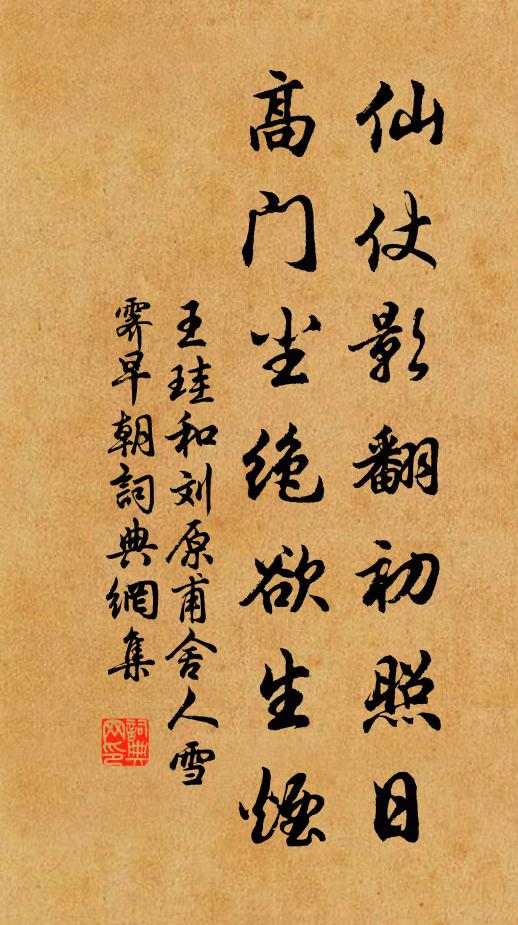 仙仗影翻初照日
髙门尘绝欲生煙
王珪和刘原甫舍人雪
霁早朝詞典網集
詞典网印